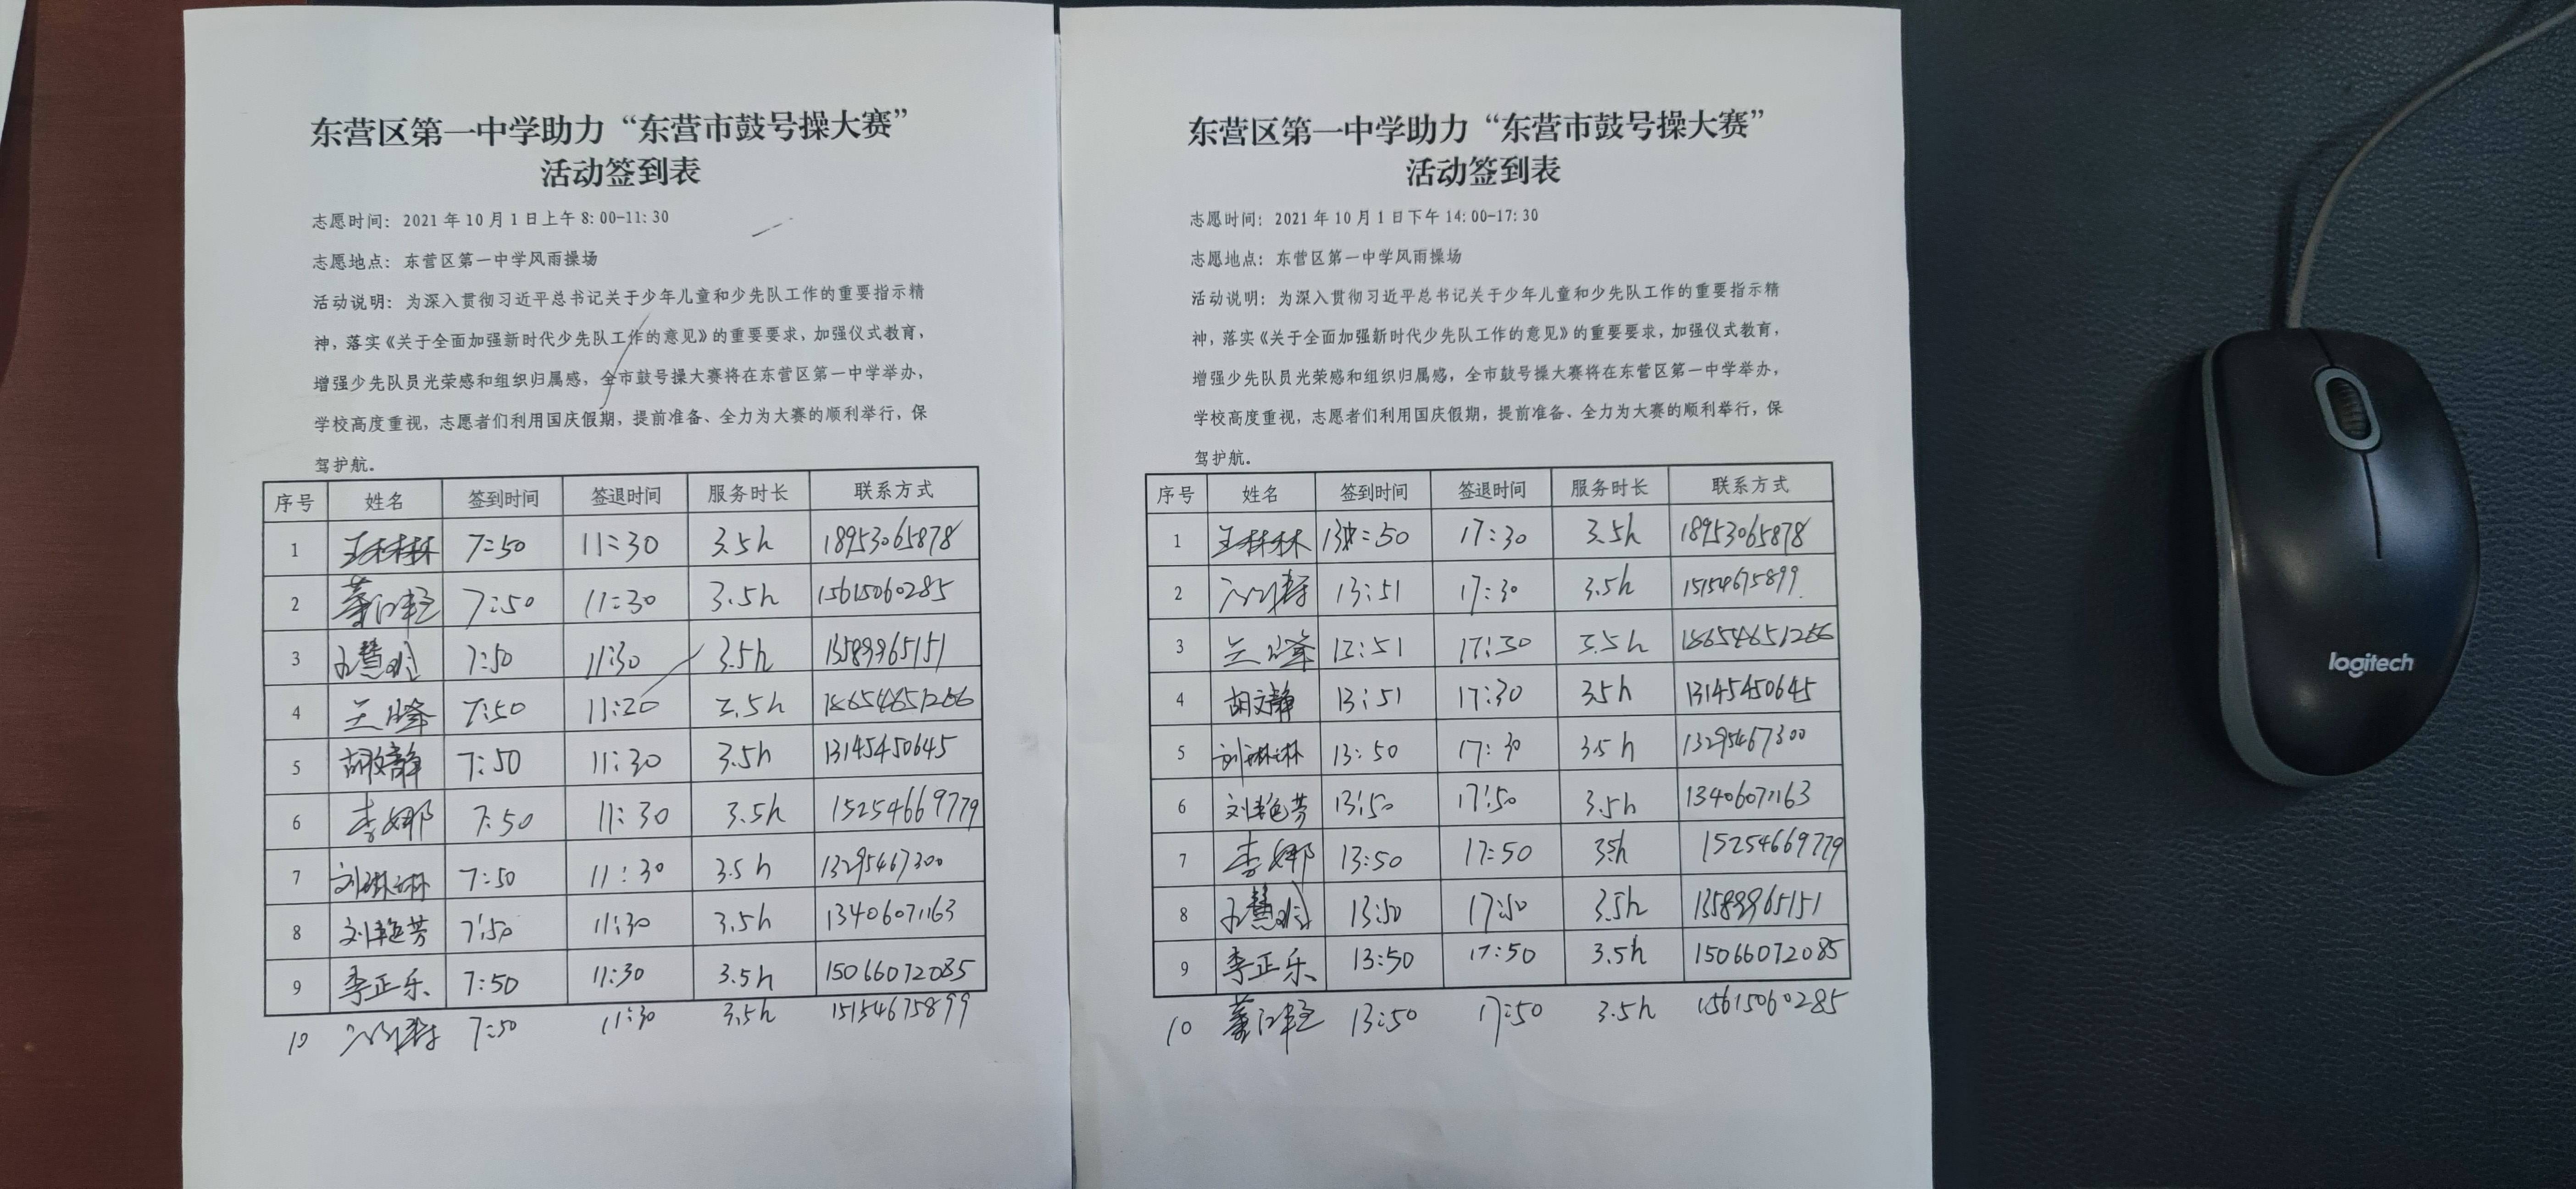 东营区第一中学助力“东营市鼓号操大赛”
活动签到表
志愿时间：2021年10月1日上午8:00-11:30
志愿地点：东营区第一中学风雨操场
活动说明：为深入贯彻习近平总书记关于少年儿童和少先队工作的重要指示精
神，落实《关于全面加强新时代少先队工作的意见》的重要要求，加强仪式教育，
增强少先队员光荣感和组织归属感，全市鼓号操大赛将在东营区第一中学举办，
学校高度重视，志愿者们利用国庆假期，提前准备、全力为大赛的顺利举行，保
驾护航。
序号 姓名 签到时间 签退时间 服务时长 联系方式
1 王林林 7:50 11:30 3.5h 18953065878
2 7:50 11:30 3.5h 15615060285
3 7:50 11:30 3.5h 13589965151
4 7:50 11:30 3.5h 18654651266
5 胡文静 7:50 11:30 3.5h 13145450645
6 李娜 7:50 11:30 3.5h 15254669779
7 刘琳琳 7:50 11:30 3.5h 13295467300
8 刘艳芳 7:50 11:30 3.5h 13406071163
9 李正乐 7:50 11:30 3.5h 15066072085
10 7:50 11:30 3.5h 15154675899
东营区第一中学助力“东营市鼓号操大赛”
活动签到表
志愿时间：2021年10月1日下午14:00-17:30
志愿地点：东营区第一中学风雨操场
活动说明：为深入贯彻习近平总书记关于少年儿童和少先队工作的重要指示精
神，落实《关于全面加强新时代少先队工作的意见》的重要要求，加强仪式教育，
增强少先队员光荣感和组织归属感，全市鼓号操大赛将在东营区第一中学举办，
学校高度重视，志愿者们利用国庆假期，提前准备、全力为大赛的顺利举行，保
驾护航。
序号 姓名 签到时间 签退时间 服务时长 联系方式
1 王林林 13:50 17:30 3.5h 18953065878
2 13:51 17:30 3.5h 15154675899
3 13:51 17:30 3.5h 18654651266
4 胡文静 13:51 17:30 3.5h 13145450645
5 刘琳琳 13:50 17:30 3.5h 13295467300
6 刘艳芳 13:50 17:50 3.5h 13406071163
7 李娜 13:50 17:50 3.5h 15254669779
8 13:50 17:50 3.5h 13589965151
9 李正乐 13:50 17:50 3.5h 15066072085
10 13:50 17:50 3.5h 15615060285
logitech